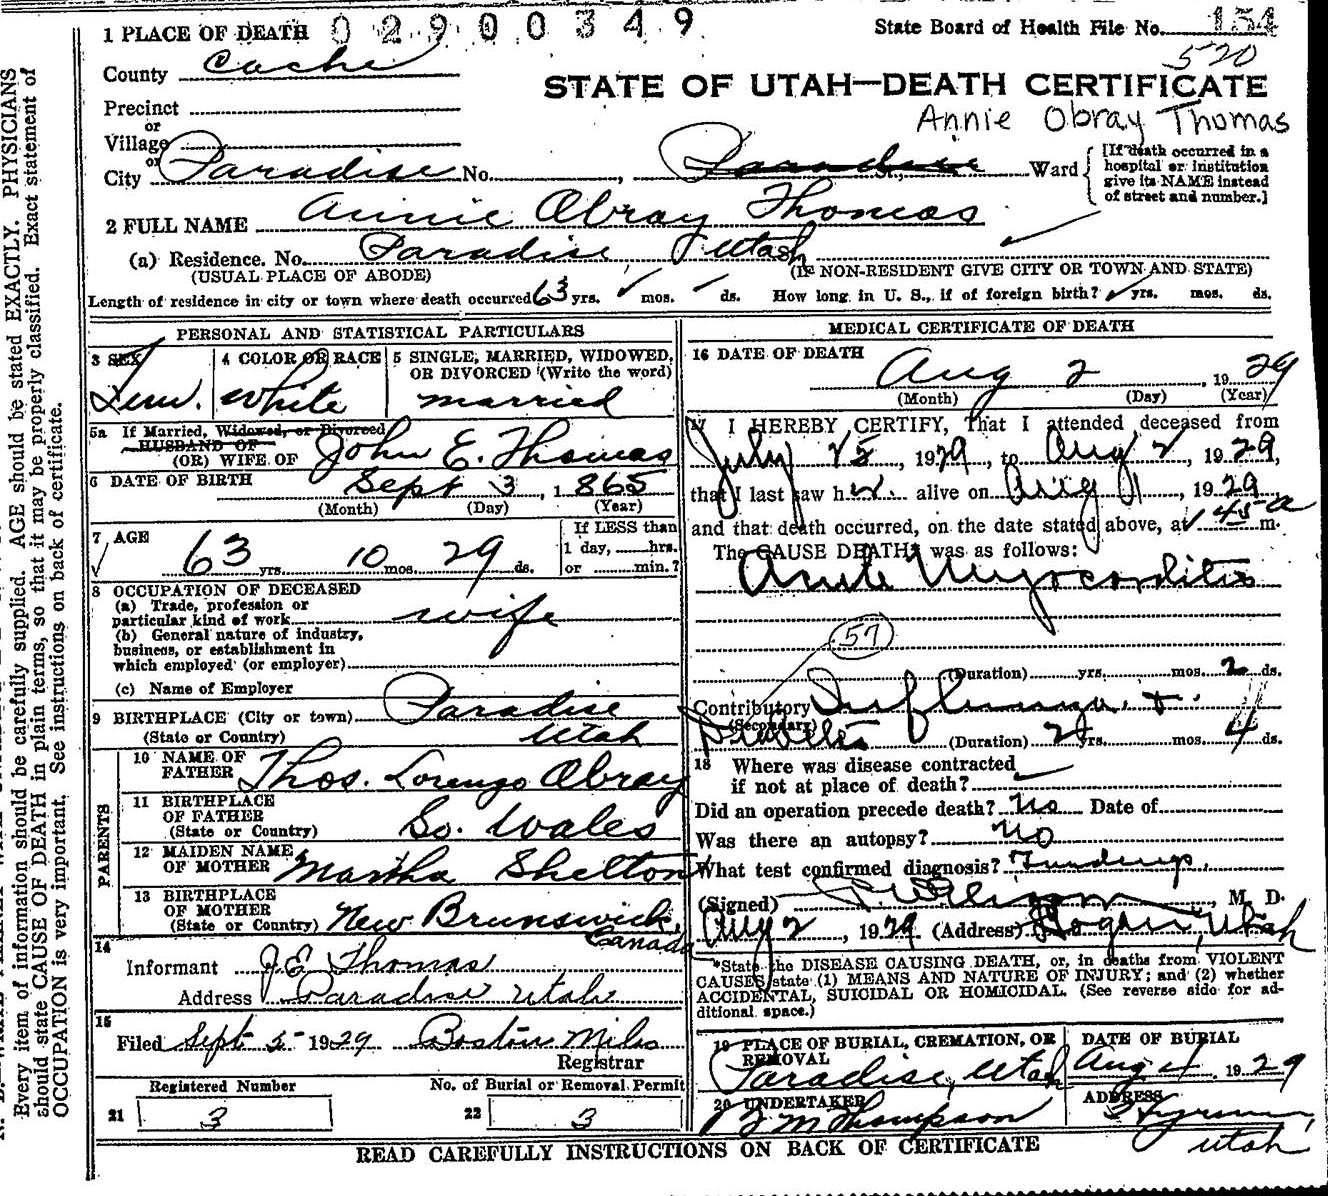 1 PLACE OF DEATH 02900349
State Board of Health File No. 154
520
County Cache
STATE OF UTAH—DEATH CERTIFICATE
Annie Obray Thomas
Precinct
or
Village
or
City Paradise No. , Paradise St., Ward
[If death occurred in a
hospital or institution
give its NAME instead
of street and number.]
2 FULL NAME Annie Obray Thomas
(a) Residence. No. Paradise, Utah
(USUAL PLACE OF ABODE) (IF NON-RESIDENT GIVE CITY OR TOWN AND STATE)
Length of residence in city or town where death occurred 63 yrs. mos. ds. How long in U. S., if of foreign birth? yrs. mos. ds.
PERSONAL AND STATISTICAL PARTICULARS
3 SEX 4 COLOR OR RACE 5 SINGLE, MARRIED, WIDOWED,
OR DIVORCED (Write the word)
Fem. White married
5a If Married, Widowed, or Divorced
HUSBAND OF
(OR) WIFE OF John E. Thomas
6 DATE OF BIRTH Sept 3, 1865
(Month) (Day) (Year)
7 AGE 63 yrs. 10 mos. 29 ds.
If LESS than
1 day, hrs.
or min.?
8 OCCUPATION OF DECEASED
(a) Trade, profession or
particular kind of work wife
(b) General nature of industry,
business, or establishment in
which employed (or employer)
(c) Name of Employer
9 BIRTHPLACE (City or town) Paradise
(State or Country) Utah
PARENTS
10 NAME OF
FATHER Thos. Lorenzo Obray
11 BIRTHPLACE
OF FATHER
(State or Country) So. Wales
12 MAIDEN NAME
OF MOTHER Martha Shelton
13 BIRTHPLACE
OF MOTHER
(State or Country) New Brunswick,
Canada
14
Informant J E Thomas
Address Paradise Utah
15
Filed Sept 5 1929 Boston Miles
Registrar
Registered Number No. of Burial or Removal Permit
21 3 22 3
MEDICAL CERTIFICATE OF DEATH
16 DATE OF DEATH
Aug 2, 1929
(Month) (Day) (Year)
17 I HEREBY CERTIFY, That I attended deceased from
July 25, 1929, to Aug 2, 1929,
that I last saw h er alive on Aug 1, 1929
and that death occurred, on the date stated above, at 1 45 a m.
The CAUSE DEATH* was as follows:
Acute Myocarditis
57
(Duration) yrs. mos. 2 ds.
Contributory Influenza +
(Secondary)
Diabetes (Duration) 2 yrs. mos. 4 ds.
18 Where was disease contracted
if not at place of death?
Did an operation precede death? no Date of
Was there an autopsy? no
What test confirmed diagnosis? Findings.
(Signed) , M. D.
Aug 2, 1929 (Address) Logan, Utah
*State the DISEASE CAUSING DEATH, or, in deaths from VIOLENT
CAUSES, state (1) MEANS AND NATURE OF INJURY; and (2) whether
ACCIDENTAL, SUICIDAL OR HOMICIDAL. (See reverse side for ad-
ditional space.)
19 PLACE OF BURIAL, CREMATION, OR
REMOVAL
Paradise, Utah
DATE OF BURIAL
Aug 4, 1929
20 UNDERTAKER
M Thompson
ADDRESS
Hyrum,
Utah
READ CAREFULLY INSTRUCTIONS ON BACK OF CERTIFICATE
Every item of information should be carefully supplied. AGE should be stated EXACTLY. PHYSICIANS
should state CAUSE OF DEATH in plain terms, so that it may be properly classified. Exact statement of
OCCUPATION is very important. See instructions on back of certificate.